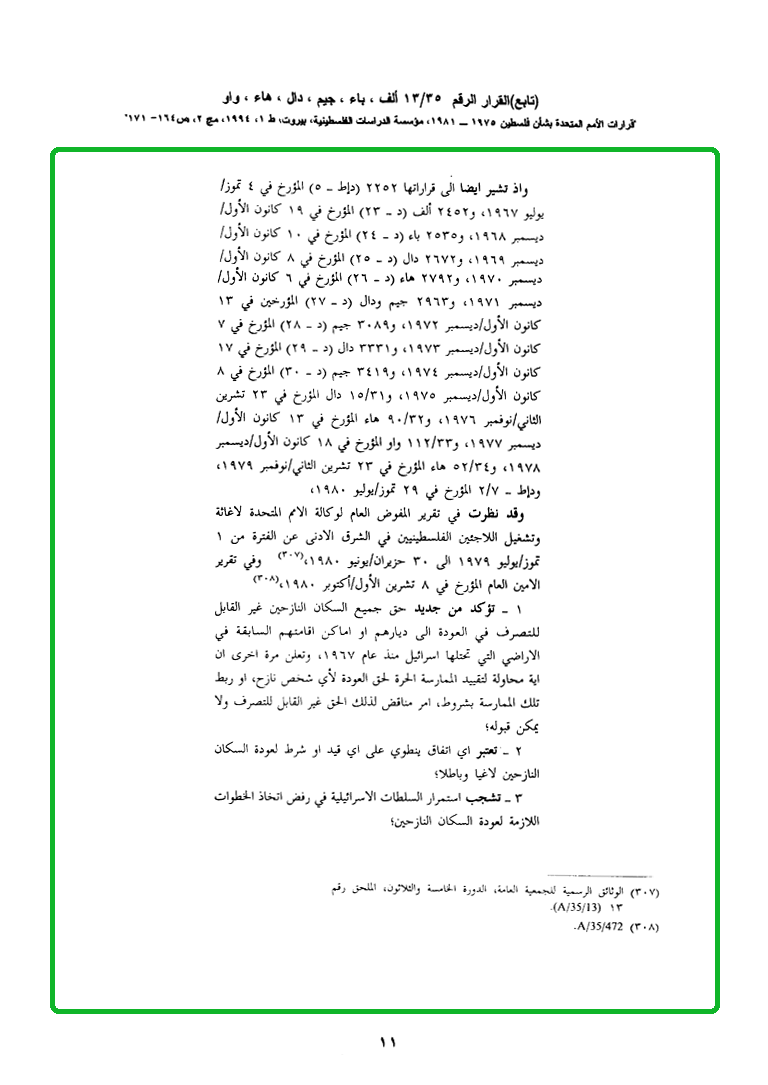 (تابع)القرار الرقم ١٣/٣٥ ألف ، باء ، جيم ، دال ، هاء ، واو
"قرارات الأمم المتحدة بشأن فلسطين ١٩٧٥ ــ ١٩٨١، مؤسسة الدراسات الفلسطينية، بيروت، ط ١، ١٩٩٤، مج ٢، ص١٦٤- ١٧١"
واذ تشير ايضا الى قراراتها ٢٢٥٢ (دإط ــ ٥) المؤرخ في ٤ تموز/
يوليو ١٩٦٧، و٢٤٥٢ ألف (د ــ ٢٣) المؤرخ في ١٩ كانون الأول/
ديسمبر ١٩٦٨، و٢٥٣٥ باء (د ــ ٢٤) المؤرخ في ١٠ كانون الأول/
ديسمبر ١٩٦٩، و٢٦٧٢ دال (د ــ ٢٥) المؤرخ في ٨ كانون الأول/
ديسمبر ١٩٧٠، و٢٧٩٢ هاء (د ــ ٢٦) المؤرخ في ٦ كانون الأول/
ديسمبر ١٩٧١، و٢٩٦٣ جيم ودال (د ــ ٢٧) المؤرخين في ١٣
كانون الأول/ديسمبر ١٩٧٢، و٣٠٨٩ جيم (د ــ ٢٨) المؤرخ في ٧
كانون الأول/ديسمبر ١٩٧٣، و٣٣٣١ دال (د ــ ٢٩) المؤرخ في ١٧
كانون الأول/ديسمبر ١٩٧٤، و٣٤١٩ جيم (د ــ ٣٠) المؤرخ في ٨
كانون الأول/ديسمبر ١٩٧٥، و١٥/٣١ دال المؤرخ في ٢٣ تشرين
الثاني/نوفمبر ١٩٧٦، و٩٠/٣٢ هاء المؤرخ في ١٣ كانون الأول/
ديسمبر ١٩٧٧، و١١٢/٣٣ واو المؤرخ في ١٨ كانون الأول/ديسمبر
١٩٧٨، و٥٢/٣٤ هاء المؤرخ في ٢٣ تشرين الثاني/نوفمبر ١٩٧٩،
ودإط ــ ٢/٧ المؤرخ في ٢٩ تموز/يوليو ١٩٨٠،
وقد نظرت في تقرير المفوض العام لوكالة الامم المتحدة لاغاثة
وتشغيل اللاجئين الفلسطينيين في الشرق الادنى عن الفترة من ١
تموز/يوليو ١٩٧٩ الى ٣٠ حزيران/يونيو ١٩٨٠،(٣٠٧) وفي تقرير
الامين العام المؤرخ في ٨ تشرين الأول/أكتوبر ١٩٨٠،(٣٠٨)
١ ــ تؤكد من جديد حق جميع السكان النازحين غير القابل
للتصرف في العودة الى ديارهم او اماكن اقامتهم السابقة في
الاراضي التي تحتلها اسرائيل منذ عام ١٩٦٧، وتعلن مرة اخرى ان
اية محاولة لتقييد الممارسة الحرة لحق العودة لأي شخص نازح، او ربط
تلك الممارسة بشروط، امر مناقض لذلك الحق غير القابل للتصرف ولا
يمكن قبوله؛
٢ ــ تعتبر اي اتفاق ينطوي على اي قيد او شرط لعودة السكان
النازحين لاغيا وباطلا؛
٣ ــ تشجب استمرار السلطات الاسرائيلية في رفض اتخاذ الخطوات
اللازمة لعودة السكان النازحين؛
(٣٠٧) الوثائق الرسمية للجمعية العامة، الدورة الخامسة والثلاثون، الملحق رقم
١٣ (A/35/13).
(٣٠٨) A/35/472.
١١